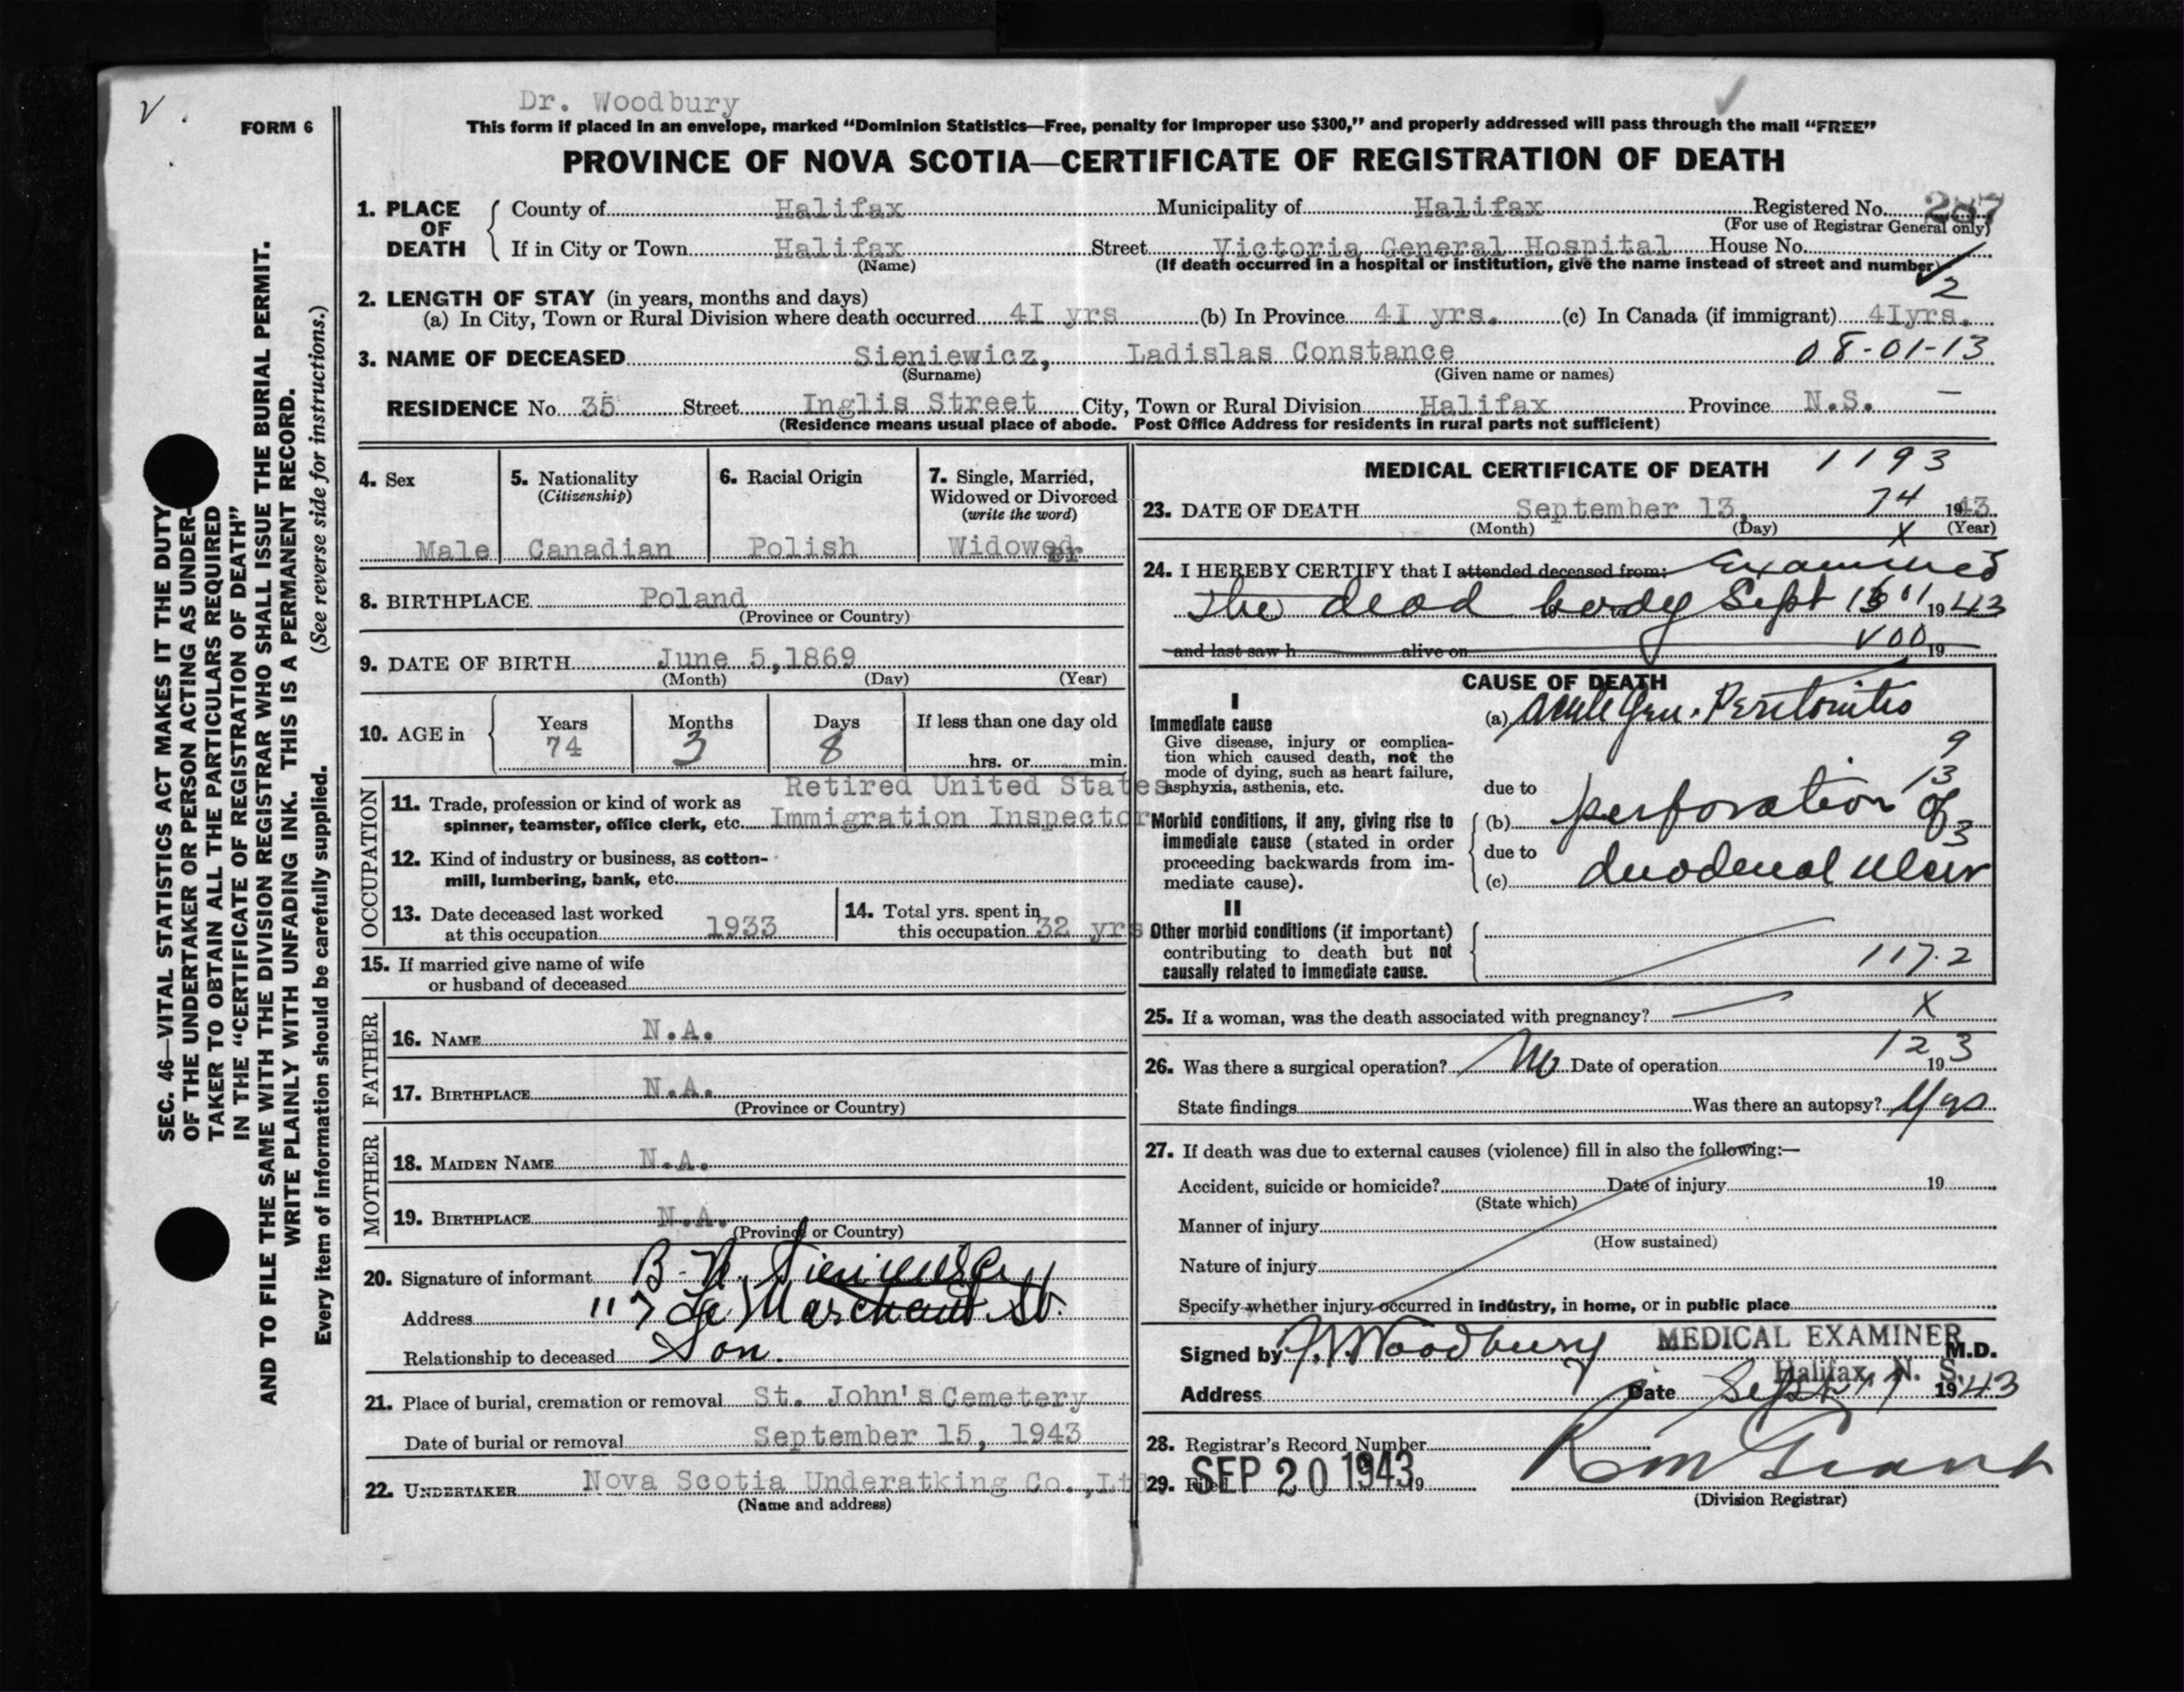 V .
Dr. Woodbury
FORM 6
This form if placed in an envelope, marked “Dominion Statistics—Free, penalty for improper use $300,” and properly addressed will pass through the mail “FREE”
PROVINCE OF NOVA SCOTIA—CERTIFICATE OF REGISTRATION OF DEATH
1. PLACE OF DEATH
County of Halifax Municipality of Halifax Registered No. 287
(For use of Registrar General only)
If in City or Town Halifax Street Victoria General Hospital House No.
(Name) (If death occurred in a hospital or institution, give the name instead of street and number)
2
2. LENGTH OF STAY (in years, months and days)
(a) In City, Town or Rural Division where death occurred 4I yrs (b) In Province 4I yrs. (c) In Canada (if immigrant) 4Iyrs.
3. NAME OF DECEASED Sieniewicz, Ladislas Constance 08-01-13
(Surname) (Given name or names)
RESIDENCE No. 35 Street Inglis Street City, Town or Rural Division Halifax Province N.S. —
(Residence means usual place of abode. Post Office Address for residents in rural parts not sufficient)
4. Sex
Male
5. Nationality
(Citizenship)
Canadian
6. Racial Origin
Polish
7. Single, Married,
Widowed or Divorced
(write the word)
Widoweder
8. BIRTHPLACE Poland
(Province or Country)
9. DATE OF BIRTH June 5,1869
(Month) (Day) (Year)
10. AGE in
Years Months Days If less than one day old
74 3 8 hrs. or min.
OCCUPATION
Retired United States
11. Trade, profession or kind of work as
spinner, teamster, office clerk, etc. Immigration Inspector
12. Kind of industry or business, as cotton-
mill, lumbering, bank, etc.
13. Date deceased last worked
at this occupation 1933
14. Total yrs. spent in
this occupation 32 yrs
15. If married give name of wife
or husband of deceased
FATHER
16. NAME N.A.
17. BIRTHPLACE N.A.
(Province or Country)
MOTHER
18. MAIDEN NAME N.A.
19. BIRTHPLACE N.A.
(Province or Country)
20. Signature of informant B. Sieniewicz
Address 117 Le Marchant St.
Relationship to deceased Son.
21. Place of burial, cremation or removal St. John's Cemetery
Date of burial or removal September 15, 1943
22. UNDERTAKER Nova Scotia Underatking Co.,Ltd
(Name and address)
MEDICAL CERTIFICATE OF DEATH 1193
23. DATE OF DEATH September 13, 74 1943
(Month) (Day) X (Year)
24. I HEREBY CERTIFY that I attended deceased from: Examined
The dead body Sept 1943
and last saw h alive on V00 19
CAUSE OF DEATH
I
Immediate cause
Give disease, injury or complica-
tion which caused death, not the
mode of dying, such as heart failure,
asphyxia, asthenia, etc.
(a) Acute Gen. Peritonitis
9
13
due to
Morbid conditions, if any, giving rise to
immediate cause (stated in order
proceeding backwards from im-
mediate cause).
(b) perforation of
3
due to
(c) duodenal ulcer
II
Other morbid conditions (if important)
contributing to death but not
causally related to immediate cause.
117.2
25. If a woman, was the death associated with pregnancy? X
123
26. Was there a surgical operation? No Date of operation 19
State findings Was there an autopsy? Yes
27. If death was due to external causes (violence) fill in also the following:—
Accident, suicide or homicide? Date of injury 19
(State which)
Manner of injury
(How sustained)
Nature of injury
Specify whether injury occurred in industry, in home, or in public place
Signed by Woodbury MEDICAL EXAMINER M.D.
Halifax, N. S.
Address Date Sept 17 1943
28. Registrar's Record Number
29. Filed SEP 20 1943 19
(Division Registrar)
SEC. 46—VITAL STATISTICS ACT MAKES IT THE DUTY
OF THE UNDERTAKER OR PERSON ACTING AS UNDER-
TAKER TO OBTAIN ALL THE PARTICULARS REQUIRED
IN THE “CERTIFICATE OF REGISTRATION OF DEATH”
AND TO FILE THE SAME WITH THE DIVISION REGISTRAR WHO SHALL ISSUE THE BURIAL PERMIT.
WRITE PLAINLY WITH UNFADING INK. THIS IS A PERMANENT RECORD.
Every item of information should be carefully supplied. (See reverse side for instructions.)